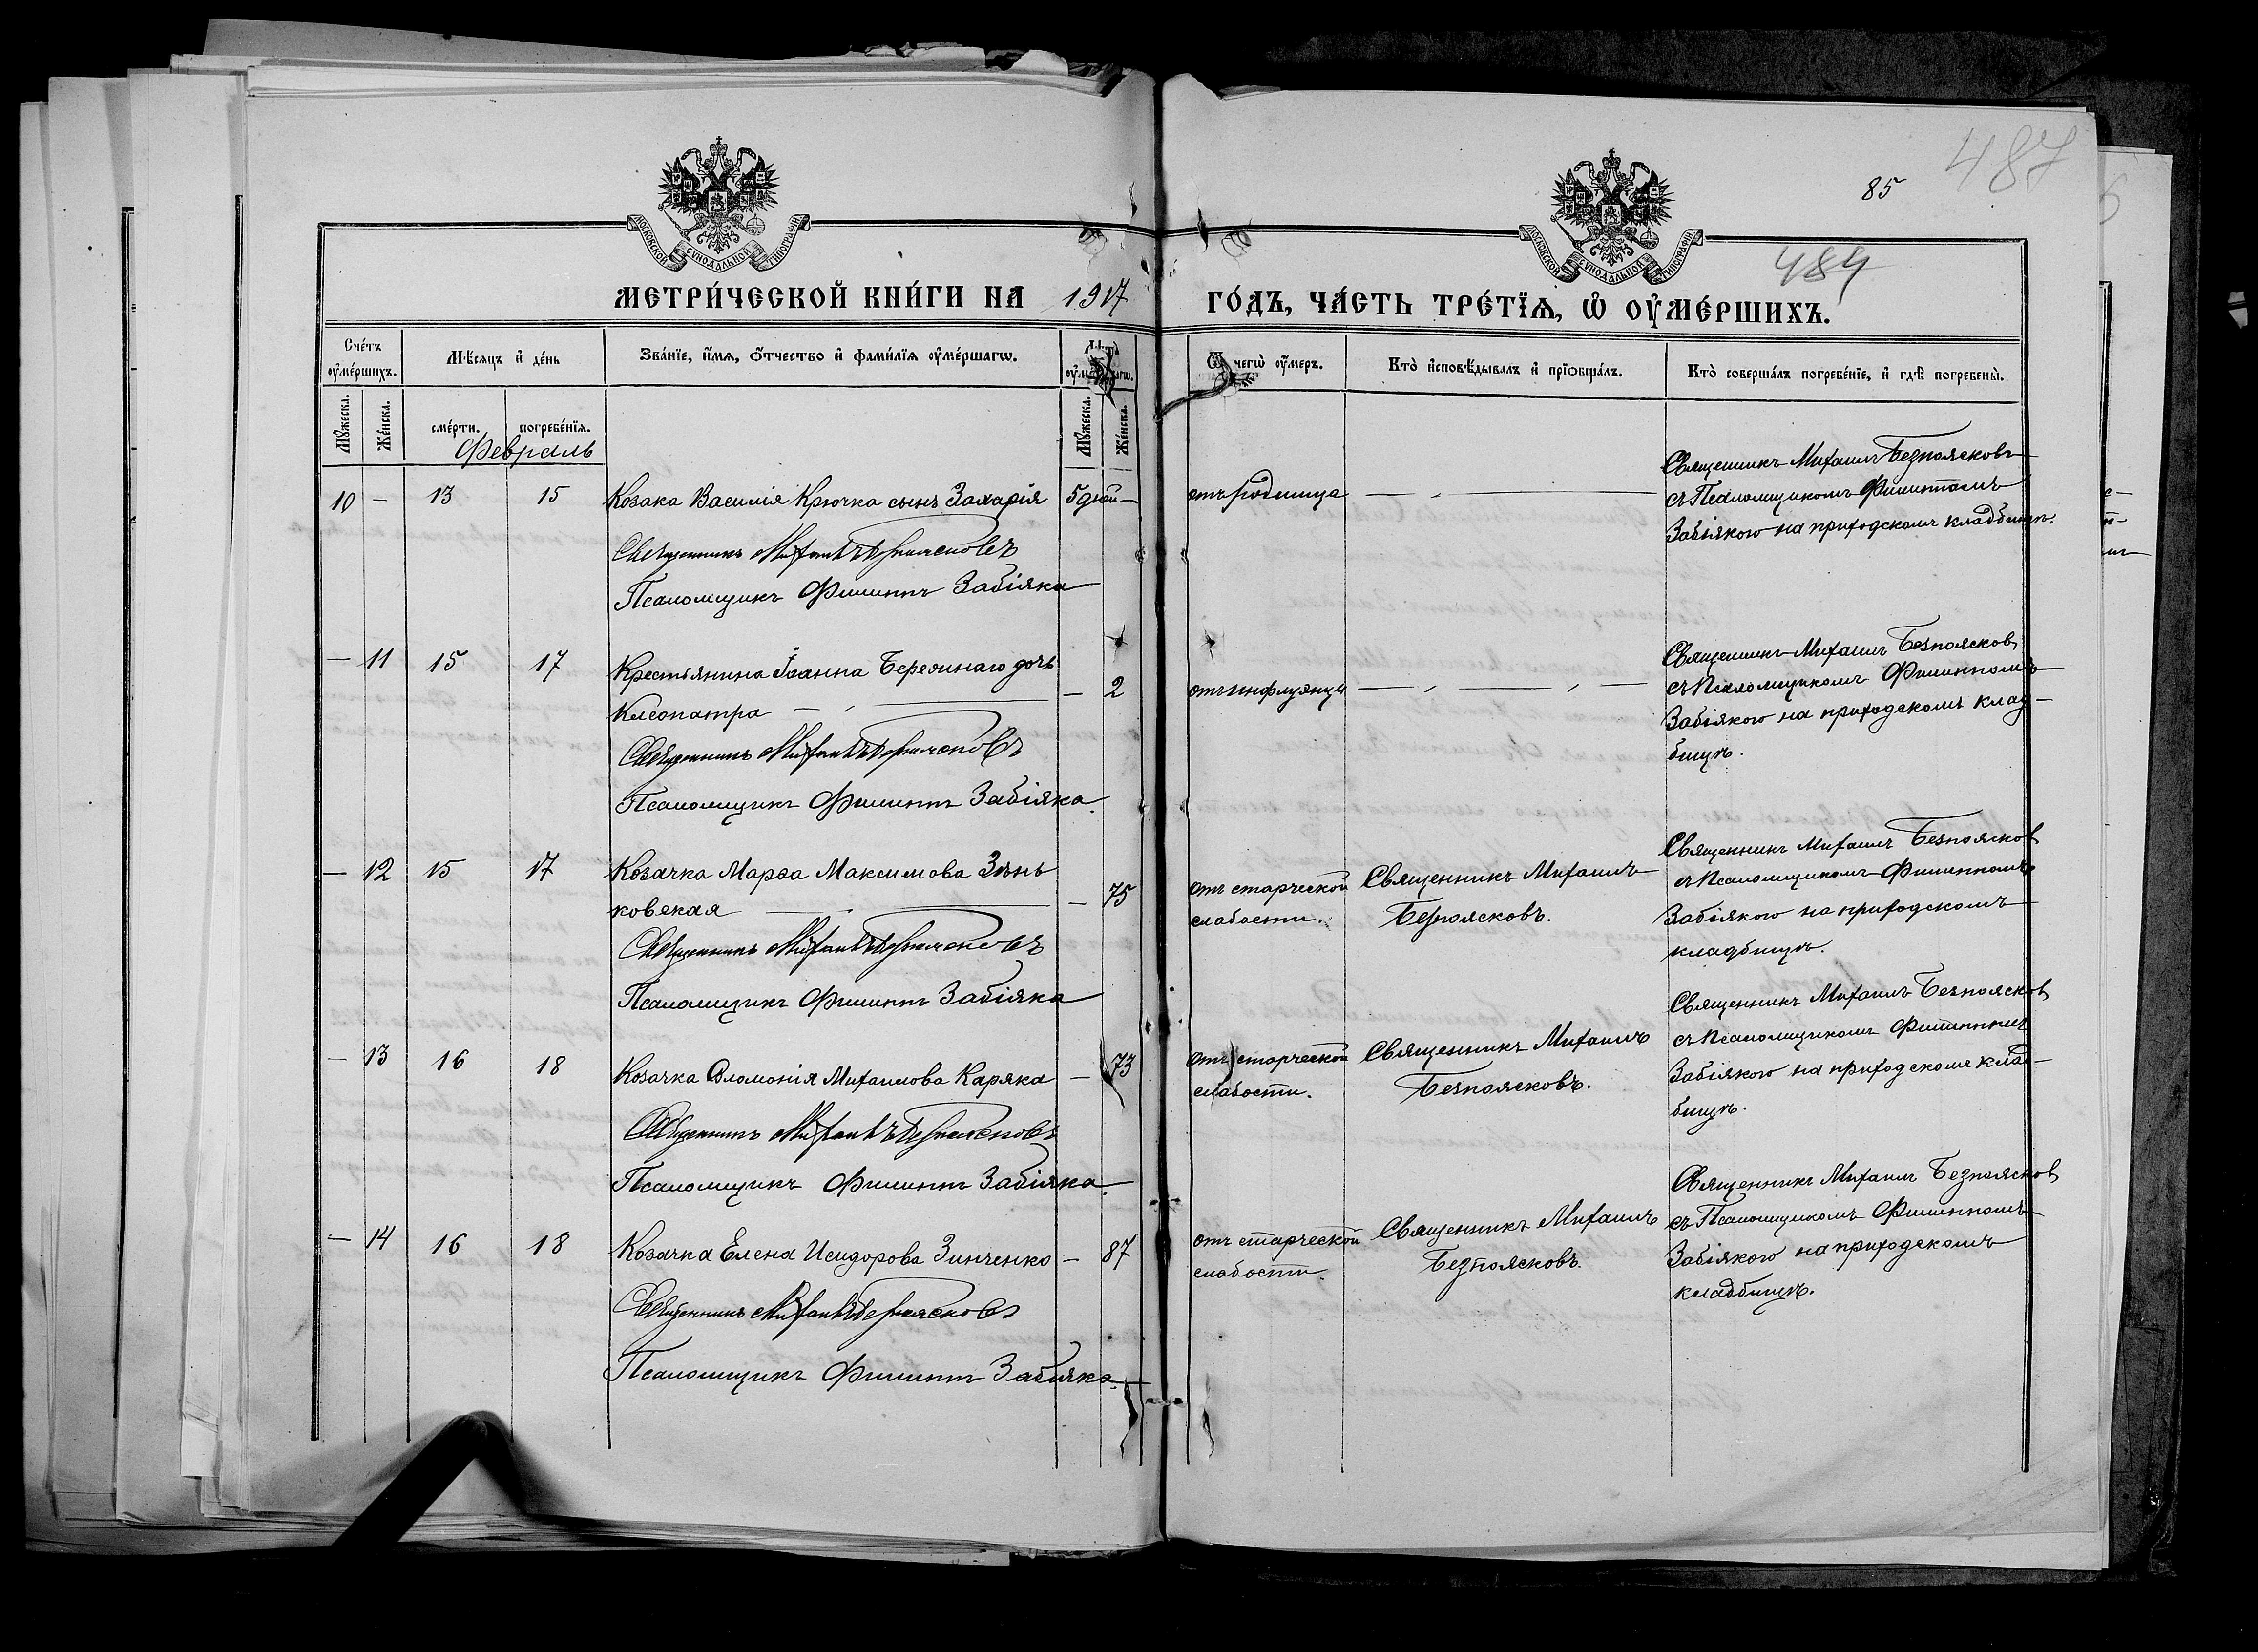 487
85
484
МОСКОВСКОЙ СѴНОДАЛЬНОЙ ТИПОГРАФІИ
МОСКОВСКОЙ СѴНОДАЛЬНОЙ ТИПОГРАФІИ
МЕТРИ́ЧЕСКОЙ КНИ́ГИ НА 1917 ГО́ДЪ, ЧА́СТЬ ТРЕ́ТЇѦ, Ѡ҆ ОУ҆МЕ́РШИХЪ.
Сче́тъ оу҆ме́ршихъ.
Мѣ́сѧцъ и҆ де́нь
Зва́нїе, и҆́мѧ, ѻ҆́тчество и҆ фами́лїѧ оу҆ме́ршагѡ.
Лѣ́та оу҆ме́ршагѡ.
Ѿ чегѡ̀ оу҆́меръ.
Кто̀ и҆сповѣ́дывалъ и҆ прїѡбща́лъ.
Кто̀ соверша́лъ погребе́нїе, и҆ гдѣ̀ погребены̀.
Мꙋ́жеска.
Же́нска.
сме́рти.
погребе́нїѧ.
Мꙋ́жеска.
Же́нска.
Февраль
10 — 13 15 Козака Василія Крючка сынъ Захарія 5 дней —
Священникъ Михаилъ Безпоясковъ
Псаломщикъ Филиппъ Забіяка
отъ родимца
Священникъ Михаилъ Безпоясковъ
съ Псаломщикомъ Филиппомъ
Забіякою на приходскомъ кладбищѣ.
— 11 15 17 Крестьянина Іоанна дочь
Клеопатра — 2
Священникъ Михаилъ Безпоясковъ
Псаломщикъ Филиппъ Забіяка.
отъ инфлуэнцы
Священникъ Михаилъ Безпоясков
съ Псаломщикомъ Филиппомъ
Забіякою на приходскомъ клад-
бищѣ.
— 12 15 17 Козачка Марѳа Максимова Зѣнь
ковская — 75
Священникъ Михаилъ Безпоясковъ
Псаломщикъ Филиппъ Забіяка
отъ старческой
слабости.
Священникъ Михаилъ
Безпоясковъ.
Священникъ Михаилъ Безпоясков
съ Псаломщикомъ Филиппомъ
Забіякою на приходскомъ
кладбищѣ.
— 13 16 18 Козачка Соломонія Михаилова Каряка — 73
Священникъ Михаилъ Безпоясковъ
Псаломщикъ Филиппъ Забіяка.
отъ старческой
слабости.
Священникъ Михаилъ
Безпоясковъ.
Священникъ Михаилъ Безпоясков
съ Псаломщикомъ Филиппомъ
Забіякою на приходскомъ клад-
бищѣ.
— 14 16 18 Козачка Елена Исидорова Зинченко — 87
Священникъ Михаилъ Безпоясковъ
Псаломщикъ Филиппъ Забіяка.
отъ старческой
слабости.
Священникъ Михаилъ
Безпоясковъ.
Священникъ Михаилъ Безпоясков
съ Псаломщикомъ Филиппомъ
Забіякою на приходскомъ
кладбищѣ.